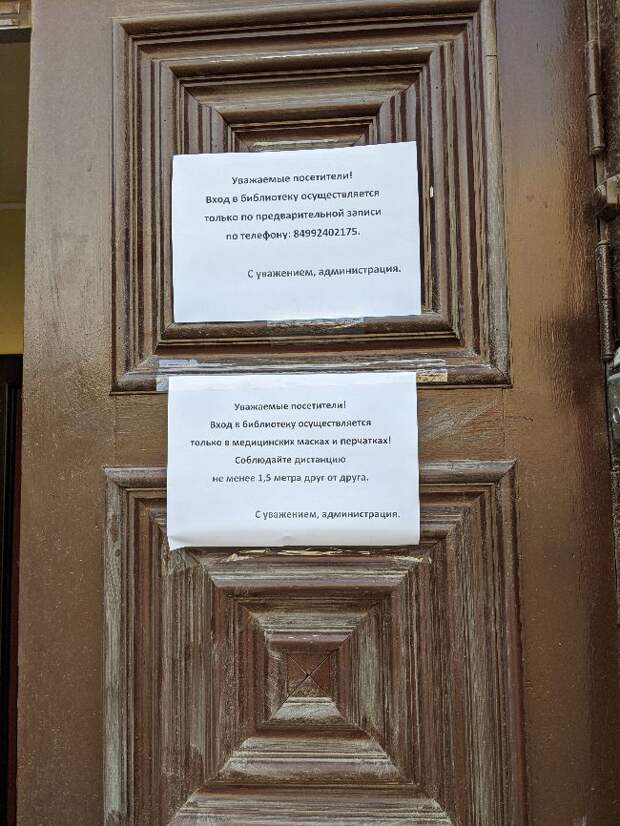 Уважаемые посетители!
Вход в библиотеку осуществляется
только по предварительной записи
по телефону: 84992402175.
С уважением, администрация.
Уважаемые посетители!
Вход в библиотеку осуществляется
только в медицинских масках и перчатках!
Соблюдайте дистанцию
не менее 1,5 метра друг от друга.
С уважением, администрация.